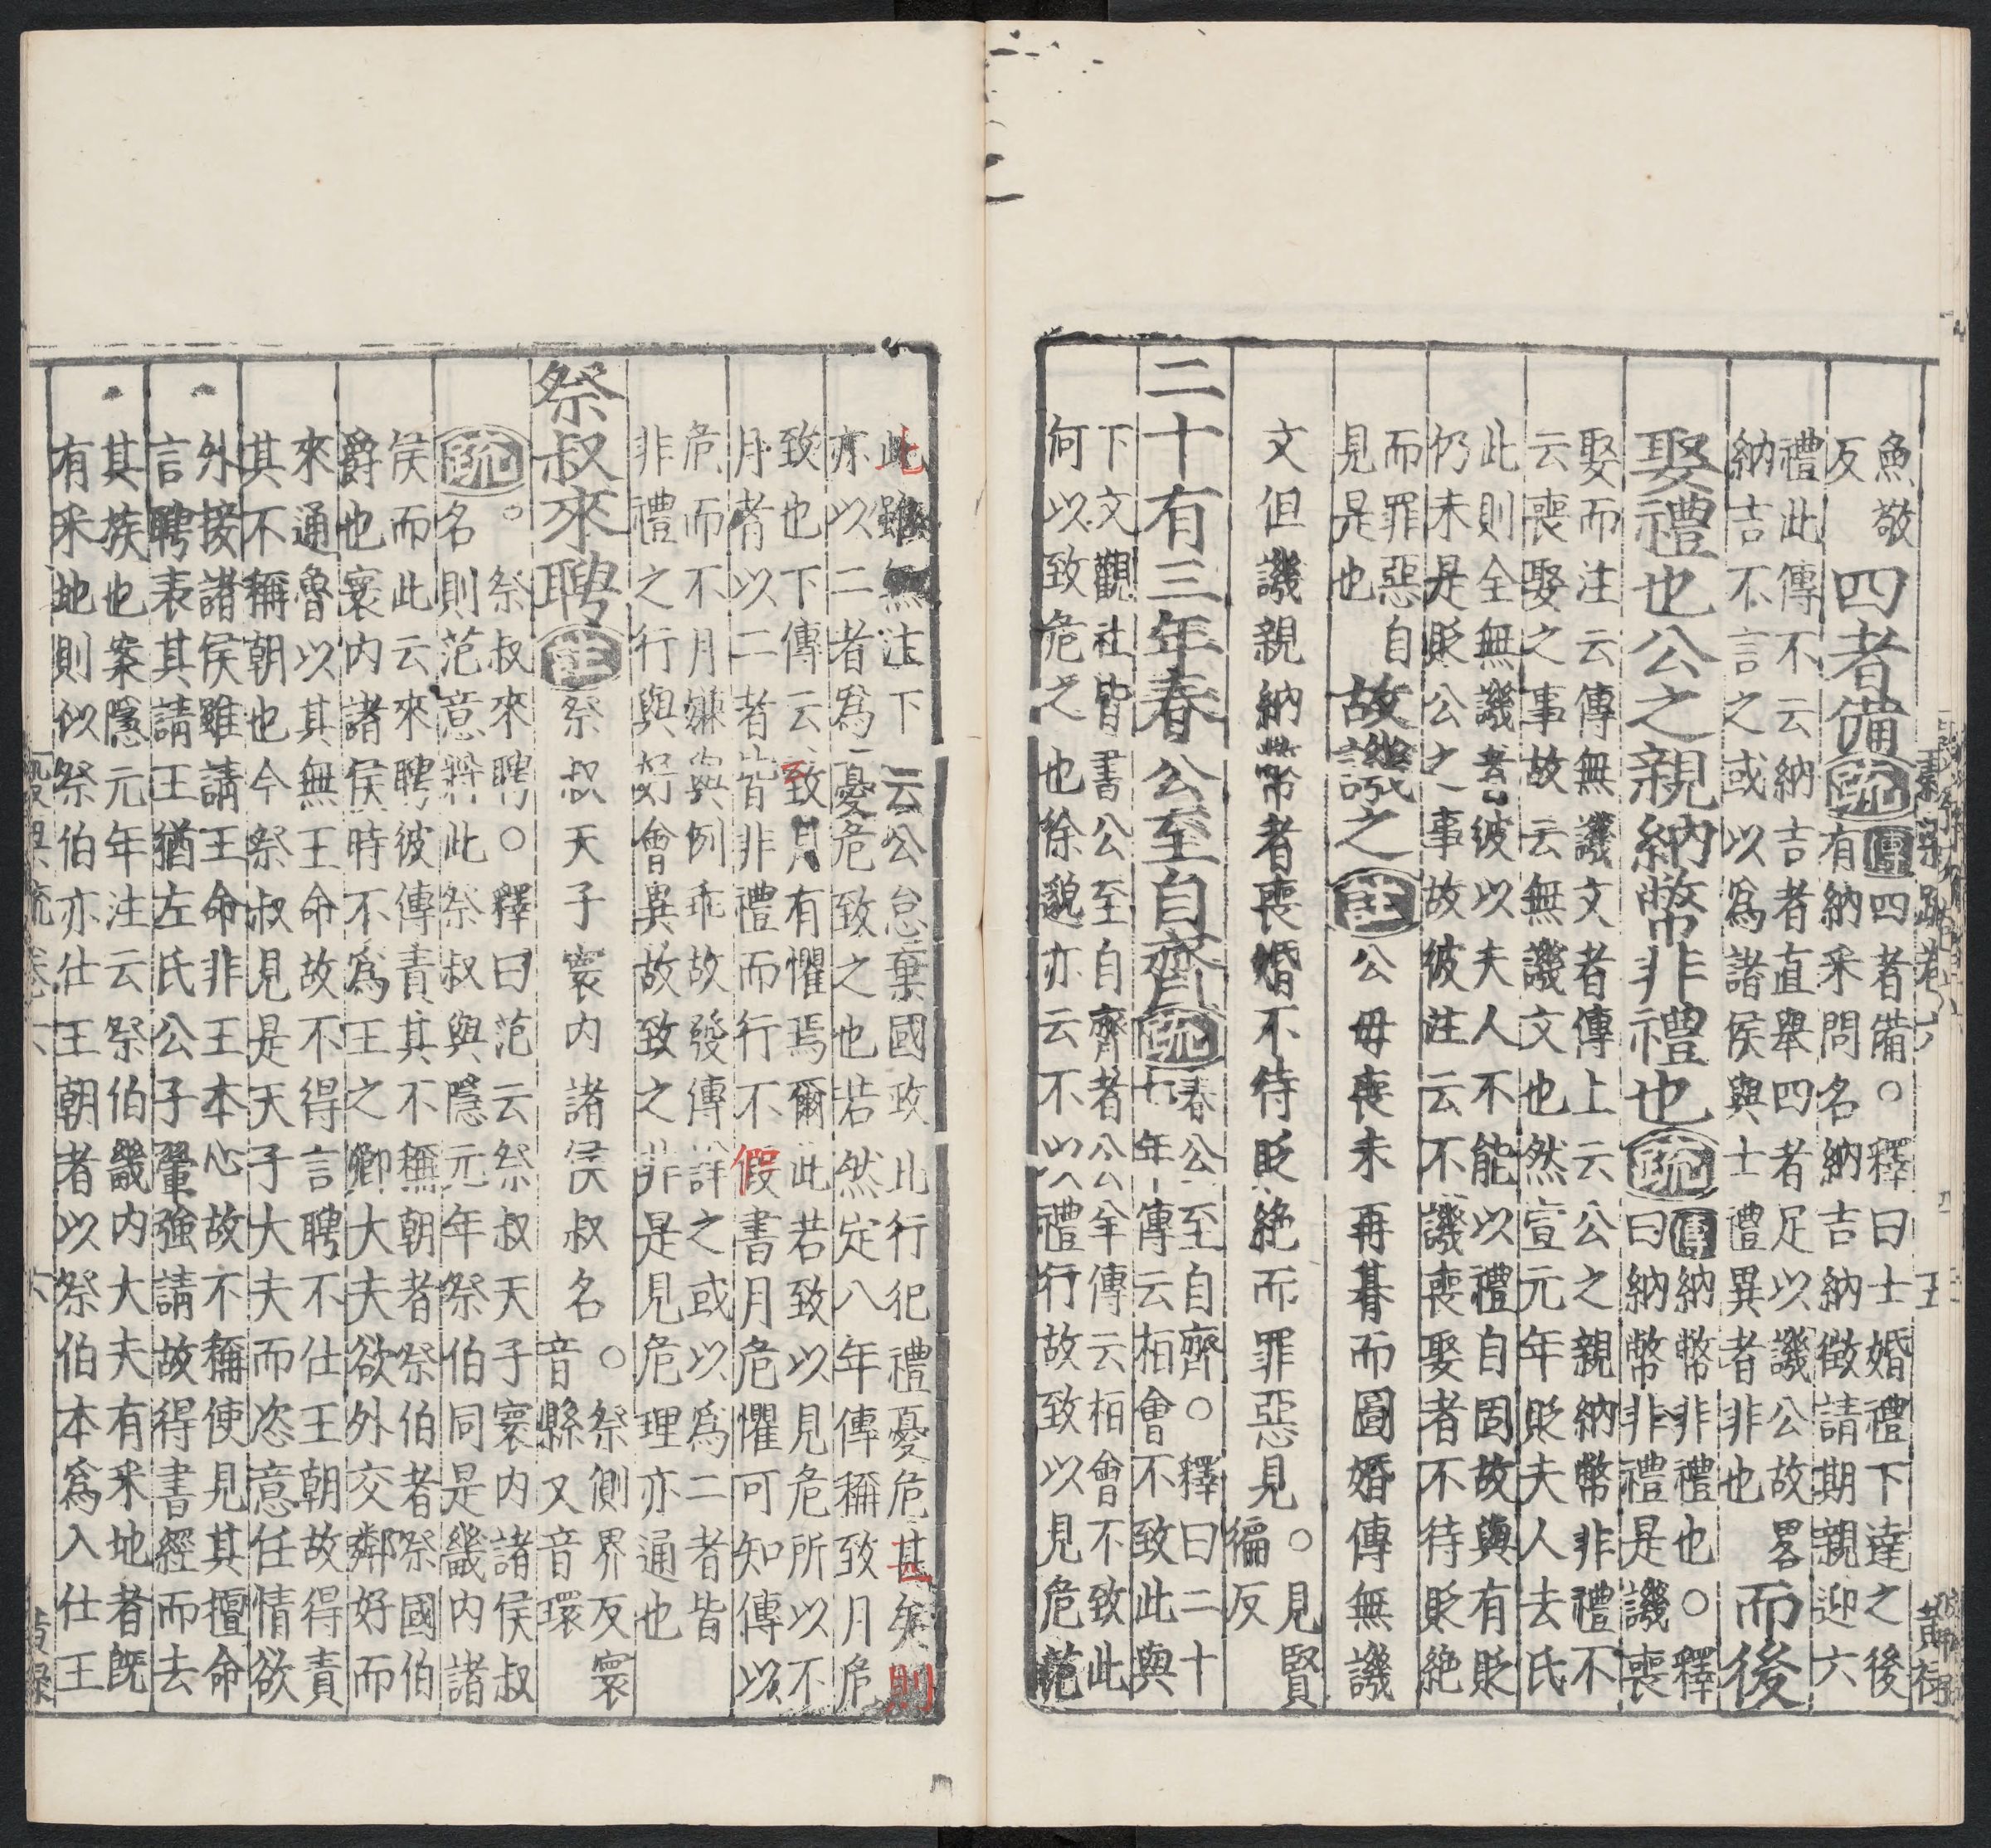 魚敬
反
四者備疏傳四者備○釋曰士婚禮下達之後
有納采問名納吉納徵請期親迎六
禮此傳不云納吉者直舉四者足以譏公故畧
納吉不言之或以爲諸侯與士禮異者非也
而後
娶禮也公之親納幣非禮也疏傳納幣非禮也○釋
曰納幣非禮是譏喪
娶而注云傳無譏文者傳上云公之親納幣非禮不
云喪娶之事故云無譏文也然宣元年貶夫人去氏
此則全無譏者彼以夫人不能以禮自固故與有貶
仍未是貶公之事故彼註云不譏喪娶者不待貶絶
而罪惡自
見是也
故譏之註公母喪未再朞而圖婚傳無譏
文但譏親納幣者喪婚不待貶絶而罪惡見○見賢
徧反
二十有三年春公至自齊疏春公至自齊○釋曰二十
七年傳云柏會不致此與
下文觀社皆書公至自齊者公羊傳云柏會不致此
何以致危之也徐邈亦云不以禮行故致以見危范
此雖無注下云公怠棄國政比行犯禮憂危甚矣則
亦以二者爲憂危致之也若然定八年傳稱致月危
致也下傳云致月有懼焉爾此若致以見危所以不
月者以二者皆非禮而行不假書月危懼可知傳以
危而不月嫌與例乖故發傳詳之或以爲二者皆
非禮之行與好會異故致之非是見危理亦通也
祭叔來聘註祭叔天子寰内諸侯叔名○祭側界反寰
音縣又音環
疏○祭叔來聘○釋曰范云祭叔天子寰内諸侯叔
名則范意將此祭叔與隱元年祭伯同是畿内諸
侯而此云來聘彼傳責其不稱朝者祭伯者祭國伯
爵也寰内諸侯時不爲王之卿大夫欲外交鄰好而
來通魯以其無王命故不得言聘不仕王朝故得責
其不稱朝也今祭叔見是天子大夫而恣意任情欲
外接諸侯雖請王命非王本心故不稱使見其擅命
言聘表其請王猶左氏公子翬強請故得書經而去
其族也案隱元年注云祭伯畿内大夫有采地者既
有采地則似祭伯亦仕王朝者以祭伯本爲入仕王